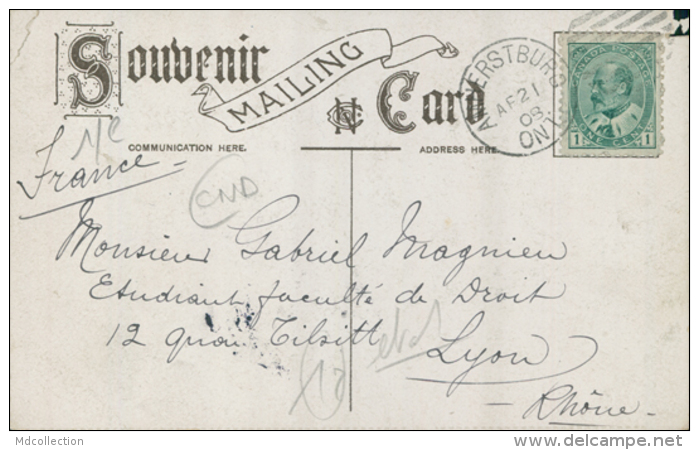 Souvenir
MAILING
Card
AMHERSTBURG
AP 21
08
ONT
CANADA POSTAGE
1 ONE CENT 1
COMMUNICATION HERE.
ADDRESS HERE.
France
CND
Monsieur Gabriel Magnien
Etudiant faculté de Droit
12 quai Tilsitt
Lyon
Rhône
Mdcollection
delcampe.net